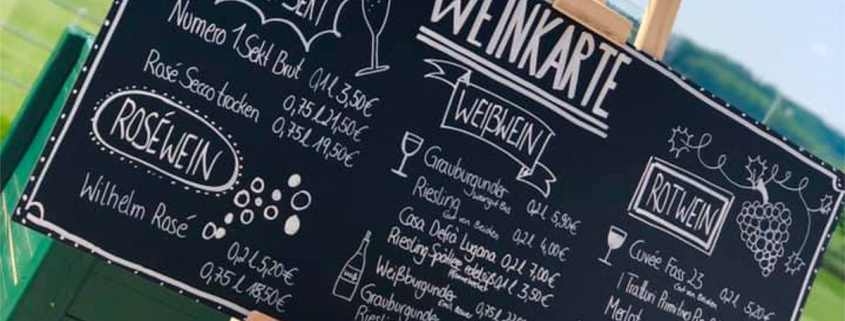 SEKT
Numero 1 Sekt Brut 0,1 l 3,50€
0,75 l 21,50€
Rosé Secco trocken 0,75 l 19,50€
ROSÉWEIN
Wilhelm Rosé
0,2 l 5,20€
0,75 l 18,50€
WEINKARTE
WEIßWEIN
Grauburgunder 0,2 l 5,90€
Riesling 0,2 l 4,00€
Casa Defrà Lugana 0,2 l 7,00€
Riesling 0,1 l 3,50€
Weißburgunder 0,75 l
Grauburgunder
Riesling
ROTWEIN
Cuvée Fass 23
0,2 l 5,20€
I Trattori Primitivo
Merlot